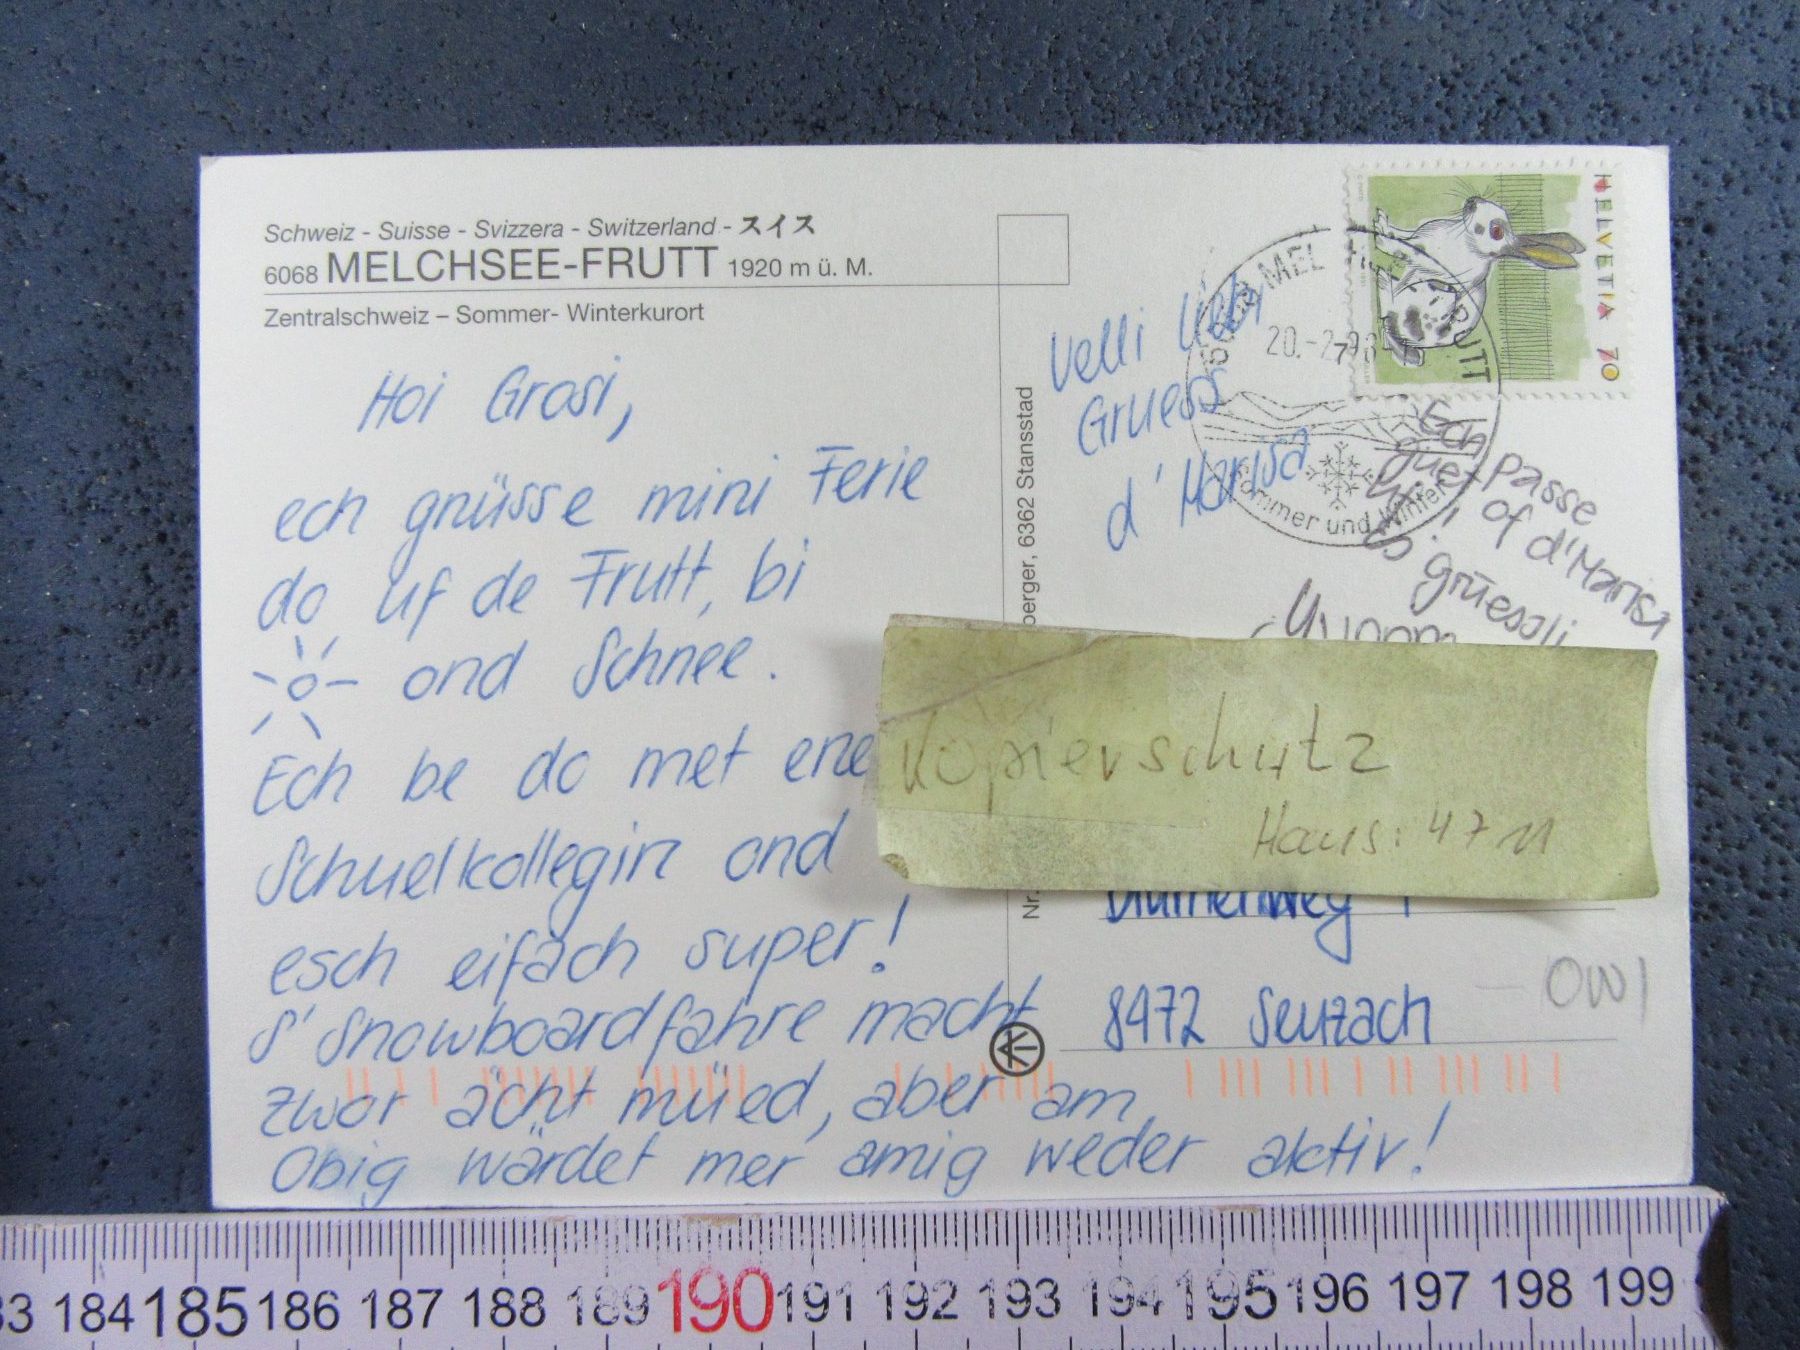 Schweiz - Suisse - Svizzera - Switzerland - スイス
6068 MELCHSEE-FRUTT 1920 m ü. M.
Zentralschweiz – Sommer- Winterkurort
Hoi Grosi,
ech gnüsse mini Ferie
do uf de Frutt, bi
ond Schnee.
Ech be do met ene
Schuelkollegin ond
esch eifach super!
S' Snowboardfahre macht
zwor ächt müed, aber am
Obig wärdet mer amig weder aktiv!
Velli liebi
Gruess
d' Marisa
HELVETIA 70
MEL FRUTT
20.-2.98
Sommer und Winter
Ech passe
guet of d'Marisa
uf
gruessli
berger, 6362 Stansstad
Nr.
Kopierschutz
Haus: 4711
8472 Seuzach
OW1
184 185 186 187 188 189 190 191 192 193 194 195 196 197 198 199